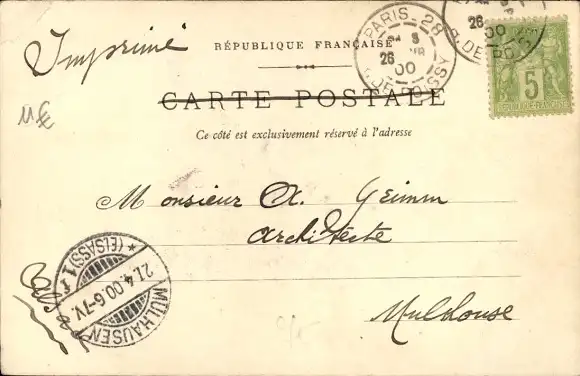 Imprimé
RÉPUBLIQUE FRANÇAISE
CARTE POSTALE
Ce côté est exclusivement réservé à l'adresse
PARIS 28
26
00
26
00
5
RÉPUBLIQUE FRANÇAISE
Monsieur A. Grimm
Architecte
Mulhouse
MÜLHAUSEN
(ELSASS) 1
27.4.00.6-7V.